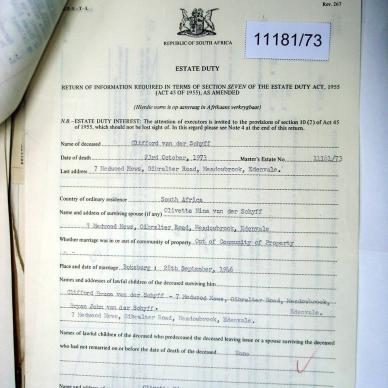 Rev. 267
REPUBLIC OF SOUTH AFRICA
11181/73
ESTATE DUTY
RETURN OF INFORMATION REQUIRED IN TERMS OF SECTION SEVEN OF THE ESTATE DUTY ACT, 1955
(ACT 45 OF 1955), AS AMENDED
(Hierdie vorm is op aanvraag in Afrikaans verkrygbaar)
N.B.—ESTATE DUTY INTEREST: The attention of executors is invited to the provisions of section 10 (2) of Act 45
of 1955, which should not be lost sight of. In this regard please see Note 4 at the end of this return.
Name of deceased Clifford van der Schyff
Date of death 23rd October, 1973 Master's Estate No. 11181/73
Last address 7 Medwood Mews, Gibralter Road, Meadowbrook, Edenvale.
Country of ordinary residence South Africa
Name and address of surviving spouse (if any) Olivette Nina van der Schyff
7 Medwood Mews, Gibralter Road, Meadowbrook, Edenvale
Whether marriage was in or out of community of property Out of Community of Property
Place and date of marriage Boksburg: 28th September, 1946
Names and addresses of lawful children of the deceased surviving him
Clifford Bruce van der Schyff - 7 Medwood Mews, Gibralter Road, Meadowbrook,
Bryan John van der Schyff. Edenvale.
7 Medwood Mews, Gibralter Road, Meadowbrook, Edenvale.
Names of lawful children of the deceased who predeceased the deceased leaving issue or a spouse surviving the deceased
who had not remarried on or before the date of death of the deceased None